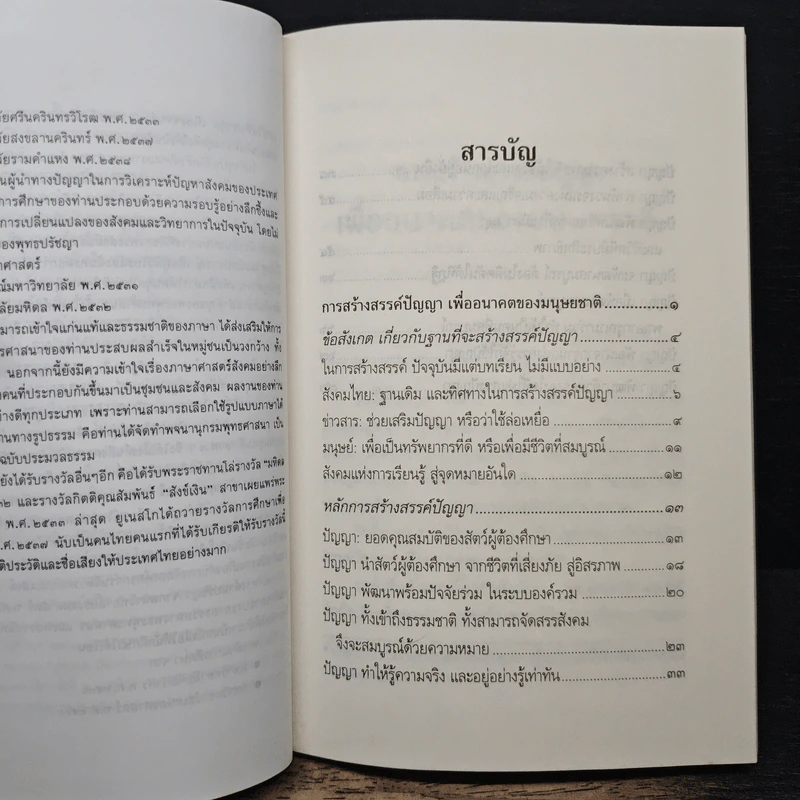 ัยศรีนครินทรวิโรฒ พ.ศ. ๒๕๓๓
ัยสงขลานครินทร์ พ.ศ. ๒๕๓๗
ัยรามคำแหง พ.ศ. ๒๕๓๘
นผู้นำทางปัญญาในการวิเคราะห์ปัญหาสังคมของประเทศ
การศึกษาของท่านประกอบด้วยความรอบรู้อย่างลึกซึ้งและ
การเปลี่ยนแปลงของสังคมและวิทยาการในปัจจุบัน โดยไม่
องพุทธปรัชญา
าศาสตร์
ณ์มหาวิทยาลัย พ.ศ. ๒๕๓๑
ลัยมหิดล พ.ศ. ๒๕๓๒
ามารถเข้าใจแก่นแท้และธรรมชาติของภาษา ได้ส่งเสริมให้การ
รศาสนาของท่านประสบผลสำเร็จในหมู่ชนเป็นวงกว้าง ทั้ง
นอกจากนี้ยังมีความเข้าใจเรื่องภาษาศาสตร์สังคมอย่างลึก
คนที่ประกอบกันขึ้นมาเป็นชุมชนและสังคม ผลงานของท่าน
่างดีทุกประเภท เพราะท่านสามารถเลือกใช้รูปแบบภาษาได้
านทางรูปธรรม คือท่านได้จัดทำพจนานุกรมพุทธศาสน เป็น
ฉบับประมวลธรรม
ยังได้รับรางวัลอื่นๆอีก คือได้รับพระราชทานโล่รางวัล “มหิดล
๓๒ และรางวัลกิตติคุณสัมพันธ์ “สังข์เงิน” สาขาเผยแพร่พระ
พ.ศ. ๒๕๓๓ ล่าสุด ยูเนสโกได้ถวายรางวัลการศึกษาเพื่อ
.ศ. ๒๕๓๗ นับเป็นคนไทยคนแรกที่ได้รับเกียรติให้รับรางวัลนี้
ติประวัติและชื่อเสียงให้ประเทศไทยอย่างมาก
สารบัญ
การสร้างสรรค์ปัญญา เพื่ออนาคตของมนุษยชาติ ................ ๑
ข้อสังเกต เกี่ยวกับฐานที่จะสร้างสรรค์ปัญญา ..................... ๔
ในการสร้างสรรค์ ปัจจุบันมีแต่บทเรียน ไม่มีแบบอย่าง ............ ๔
สังคมไทย: ฐานเดิม และทิศทางในการสร้างสรรค์ปัญญา ........... ๖
ข่าวสาร: ช่วยเสริมปัญญา หรือว่าใช้ล่อเหยื่อ ......................... ๙
มนุษย์: เพื่อเป็นทรัพยากรที่ดี หรือเพื่อมีชีวิตที่สมบูรณ์ ............ ๑๑
สังคมแห่งการเรียนรู้ สู่จุดหมายอันใด ................................ ๑๒
หลักการสร้างสรรค์ปัญญา ............................................. ๑๓
ปัญญา: ยอดคุณสมบัติของสัตว์ผู้ต้องศึกษา .......................... ๑๓
ปัญญา นำสัตว์ผู้ต้องศึกษา จากชีวิตที่เสี่ยงภัย สู่อิสรภาพ .......... ๑๘
ปัญญา พัฒนาพร้อมปัจจัยร่วม ในระบบองค์รวม .................... ๒๐
ปัญญา ทั้งเข้าถึงธรรมชาติ ทั้งสามารถจัดสรรสังคม
จึงจะสมบูรณ์ด้วยความหมาย ...................................... ๒๓
ปัญญา ทำให้รู้ความจริง และอยู่อย่างรู้เท่าทัน ........................ ๓๓